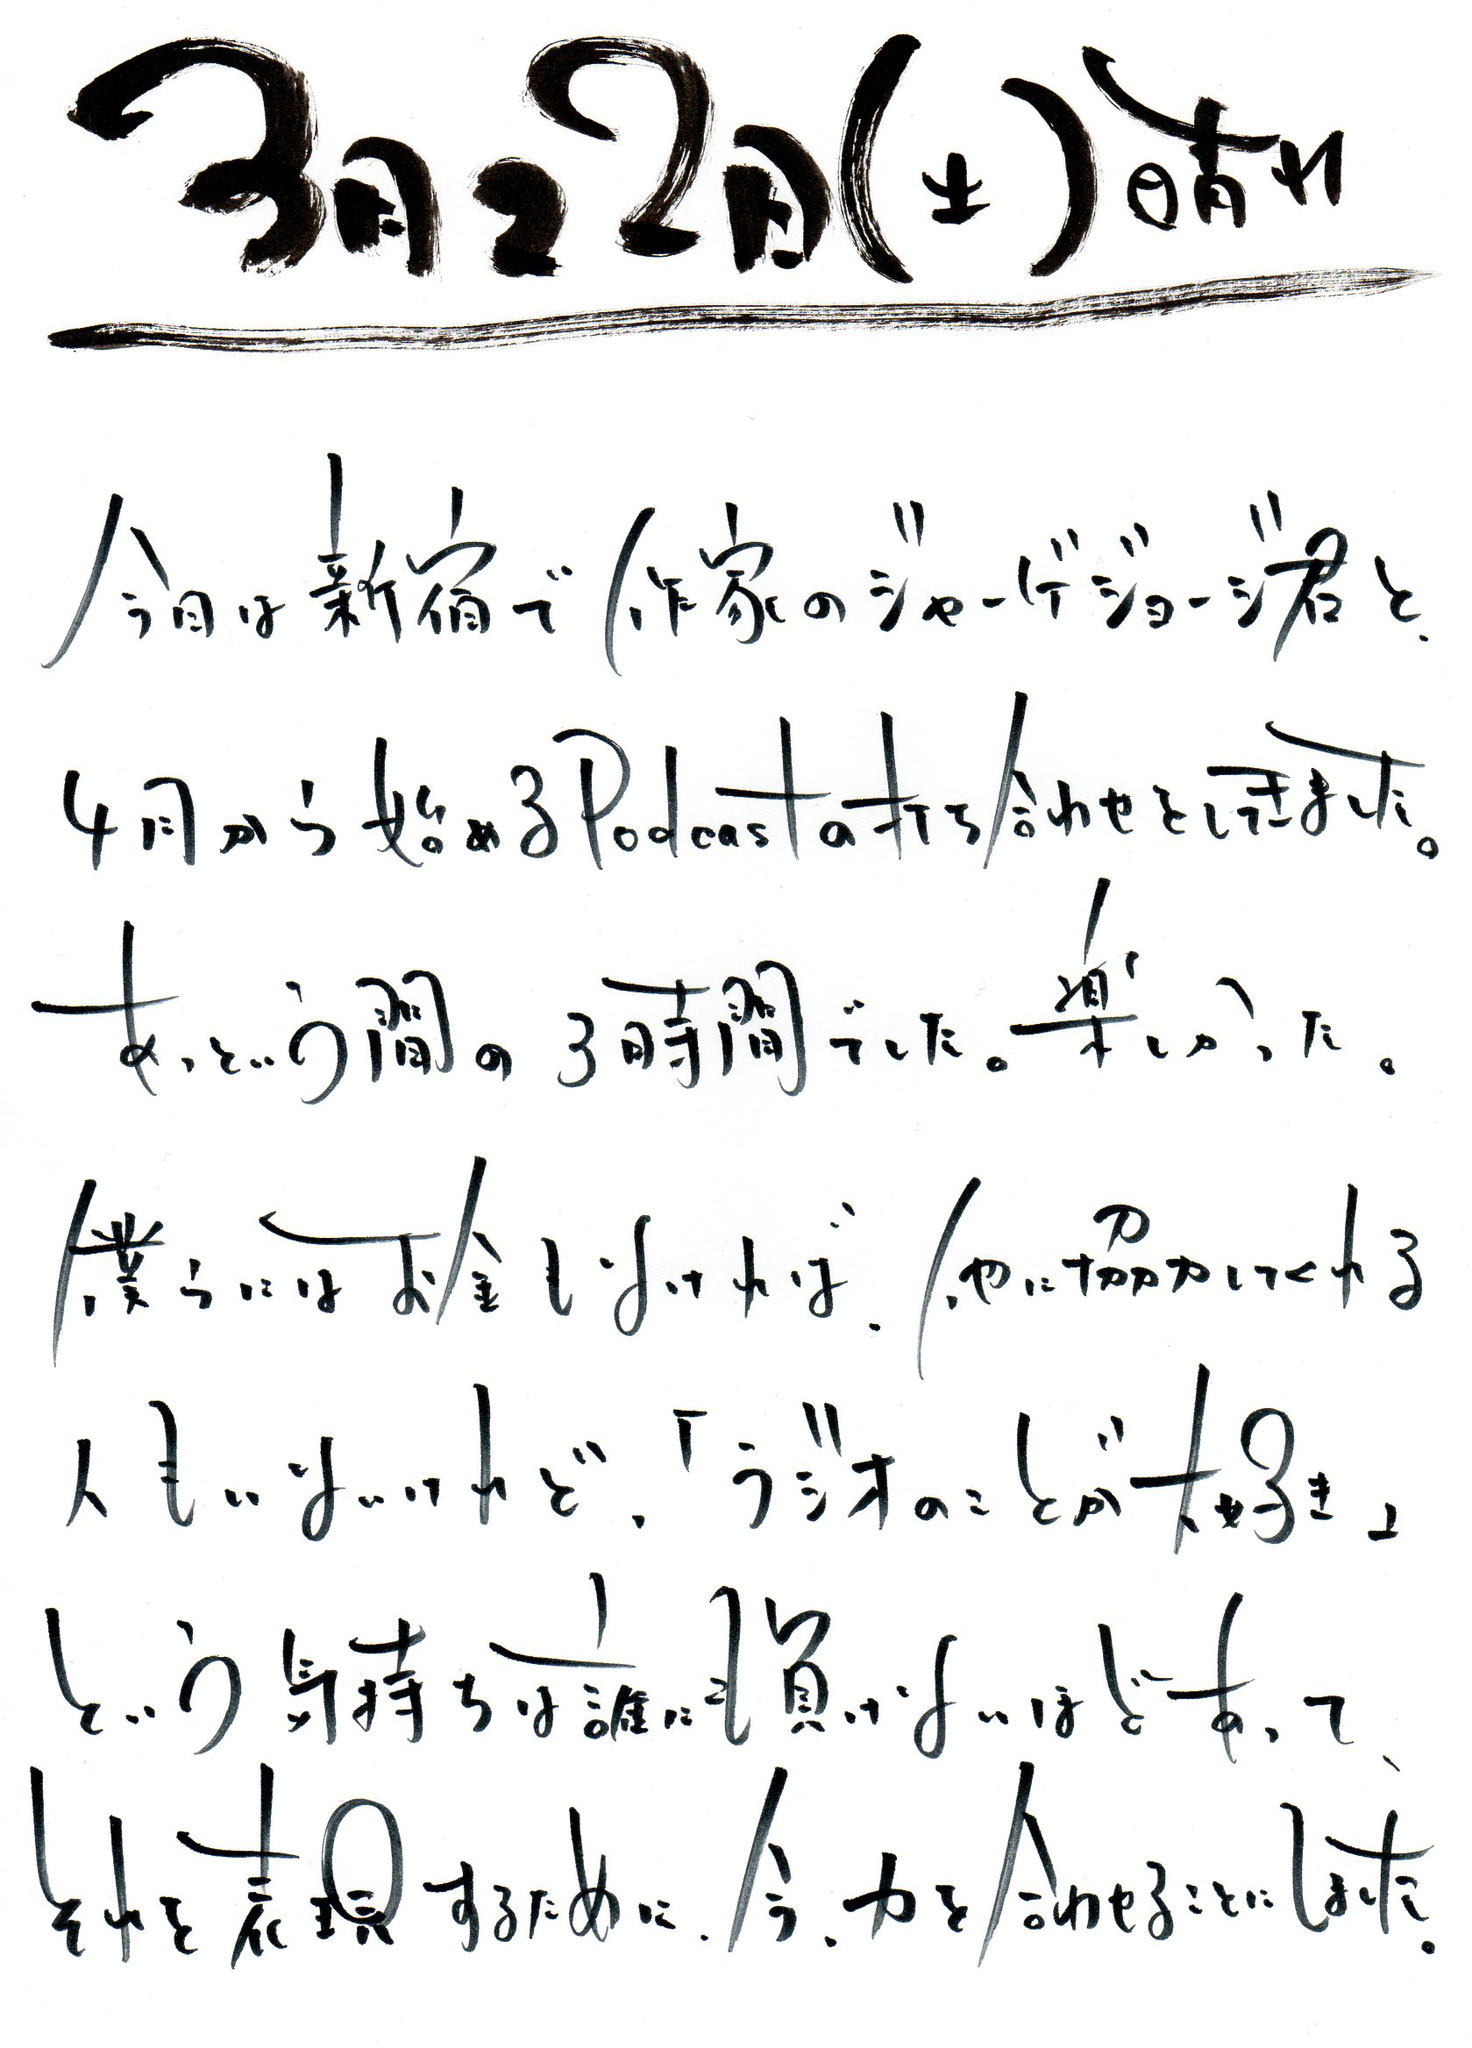 3月22日(土)晴れ
今日は新宿で作家のジャージジョージ君と、
4月から始めるPodcastの打ち合わせをしてきました。
あっという間の3時間でした。楽しかった。
僕らにはお金もなければ、他に協力してくれる
人もいないけれど、「ラジオのことが大好き」
という気持ちは誰にも負けないほどあって、
それを表現するために、今、力を合わせることにしました。